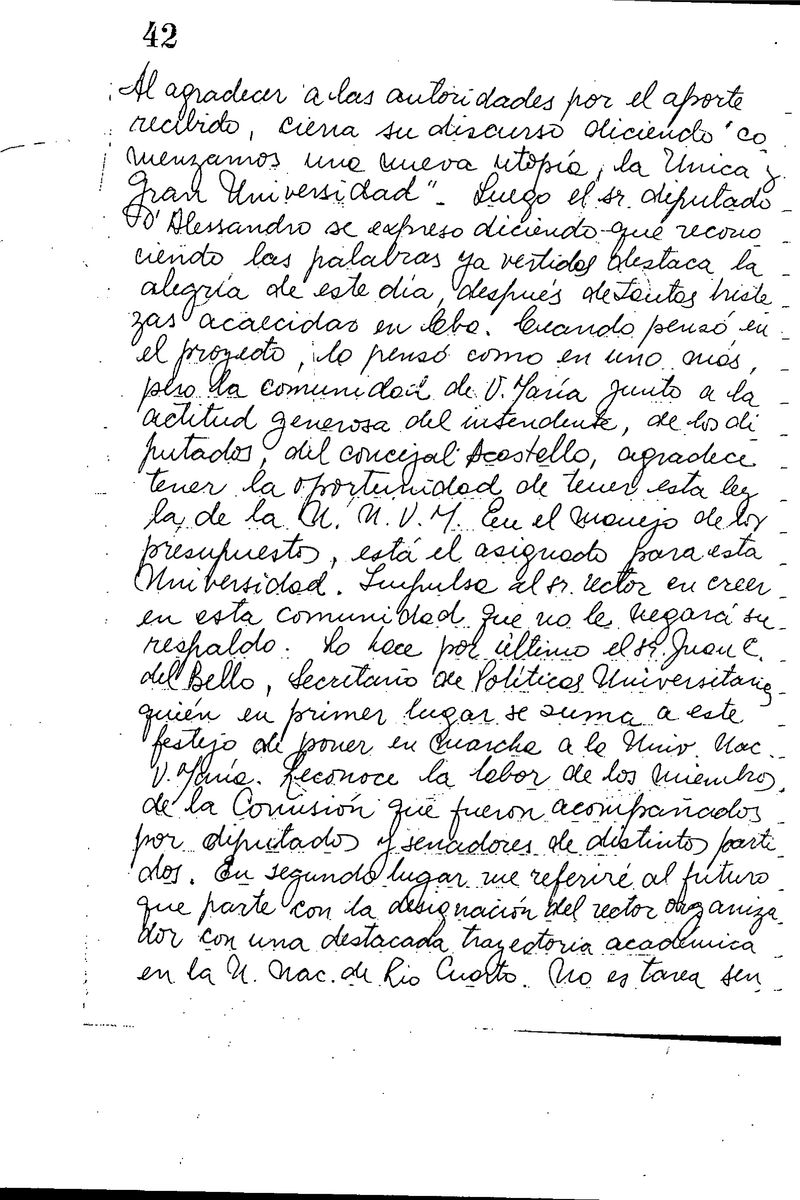 42
Al agradecer a las autoridades por el aporte
recibido, cierra su discurso diciendo "co
menzamos una nueva utopía, la Unica y
Gran Universidad"_ Luego el sr. diputado
D'Alessandro se expreso diciendo que recono
ciendo las palabras ya vertidas destaca la
alegría de este día, después de tantas triste
zas acaecidas en Cba. Cuando pensó en
el proyecto, lo pensó como en uno más,
pero la comunidad de V. María junto a la
actitud generosa del intendente, de los di
putados, del concejal Acastello, agradece
tener la oportunidad de tener esta ley
la de la U. N. V. M. En el manejo de los
presupuestos, está el asignado para esta
Universidad. Impulsa al sr. rector en creer
en esta comunidad que no le negará su
respaldo. Lo hace por último el Sr. Juan C.
del Bello, Secretario de Políticas Universitarias
quién en primer lugar se suma a este
festejo de poner en marcha a la Univ. Nac.
V. María. Reconoce la labor de los miembros
de la Comisión que fueron acompañados
por diputados y senadores de distintos parti
dos. En segundo lugar me referiré al futuro
que parte con la designación del rector organiza
dor con una destacada trayectoria académica
en la U. Nac. de Rio Cuarto. No es tarea sen